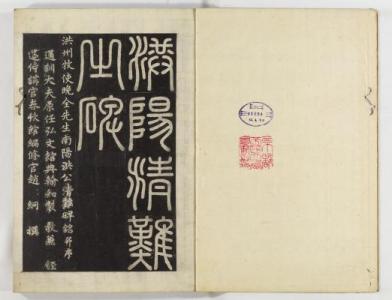 洪陽清難
之碑
洪州牧使晩全先生南陽洪公清難碑銘并序
通訓大夫原任弘文館典翰知製 敎兼 經
筵侍講官春秋館編修官趙 絅 撰